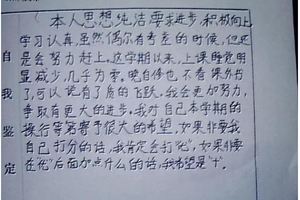 自我鉴定
本人思想纯洁要求进步,积极向上
学习认真虽然偶尔有考差的时候,但还
是会努力赶上。这学期以来,上课睡觉明
显减少,几乎为零,晚自修也不看课外书
了,可以说有了质的飞跃,我会更加努力,
争取有更大的进步。我对自己本学期的
操行等第寄予很大的希望,如果非要我
自己打分的话,我肯定会打“优”,如果非要
在“优”后面加点什么的话,我希望是“+”.